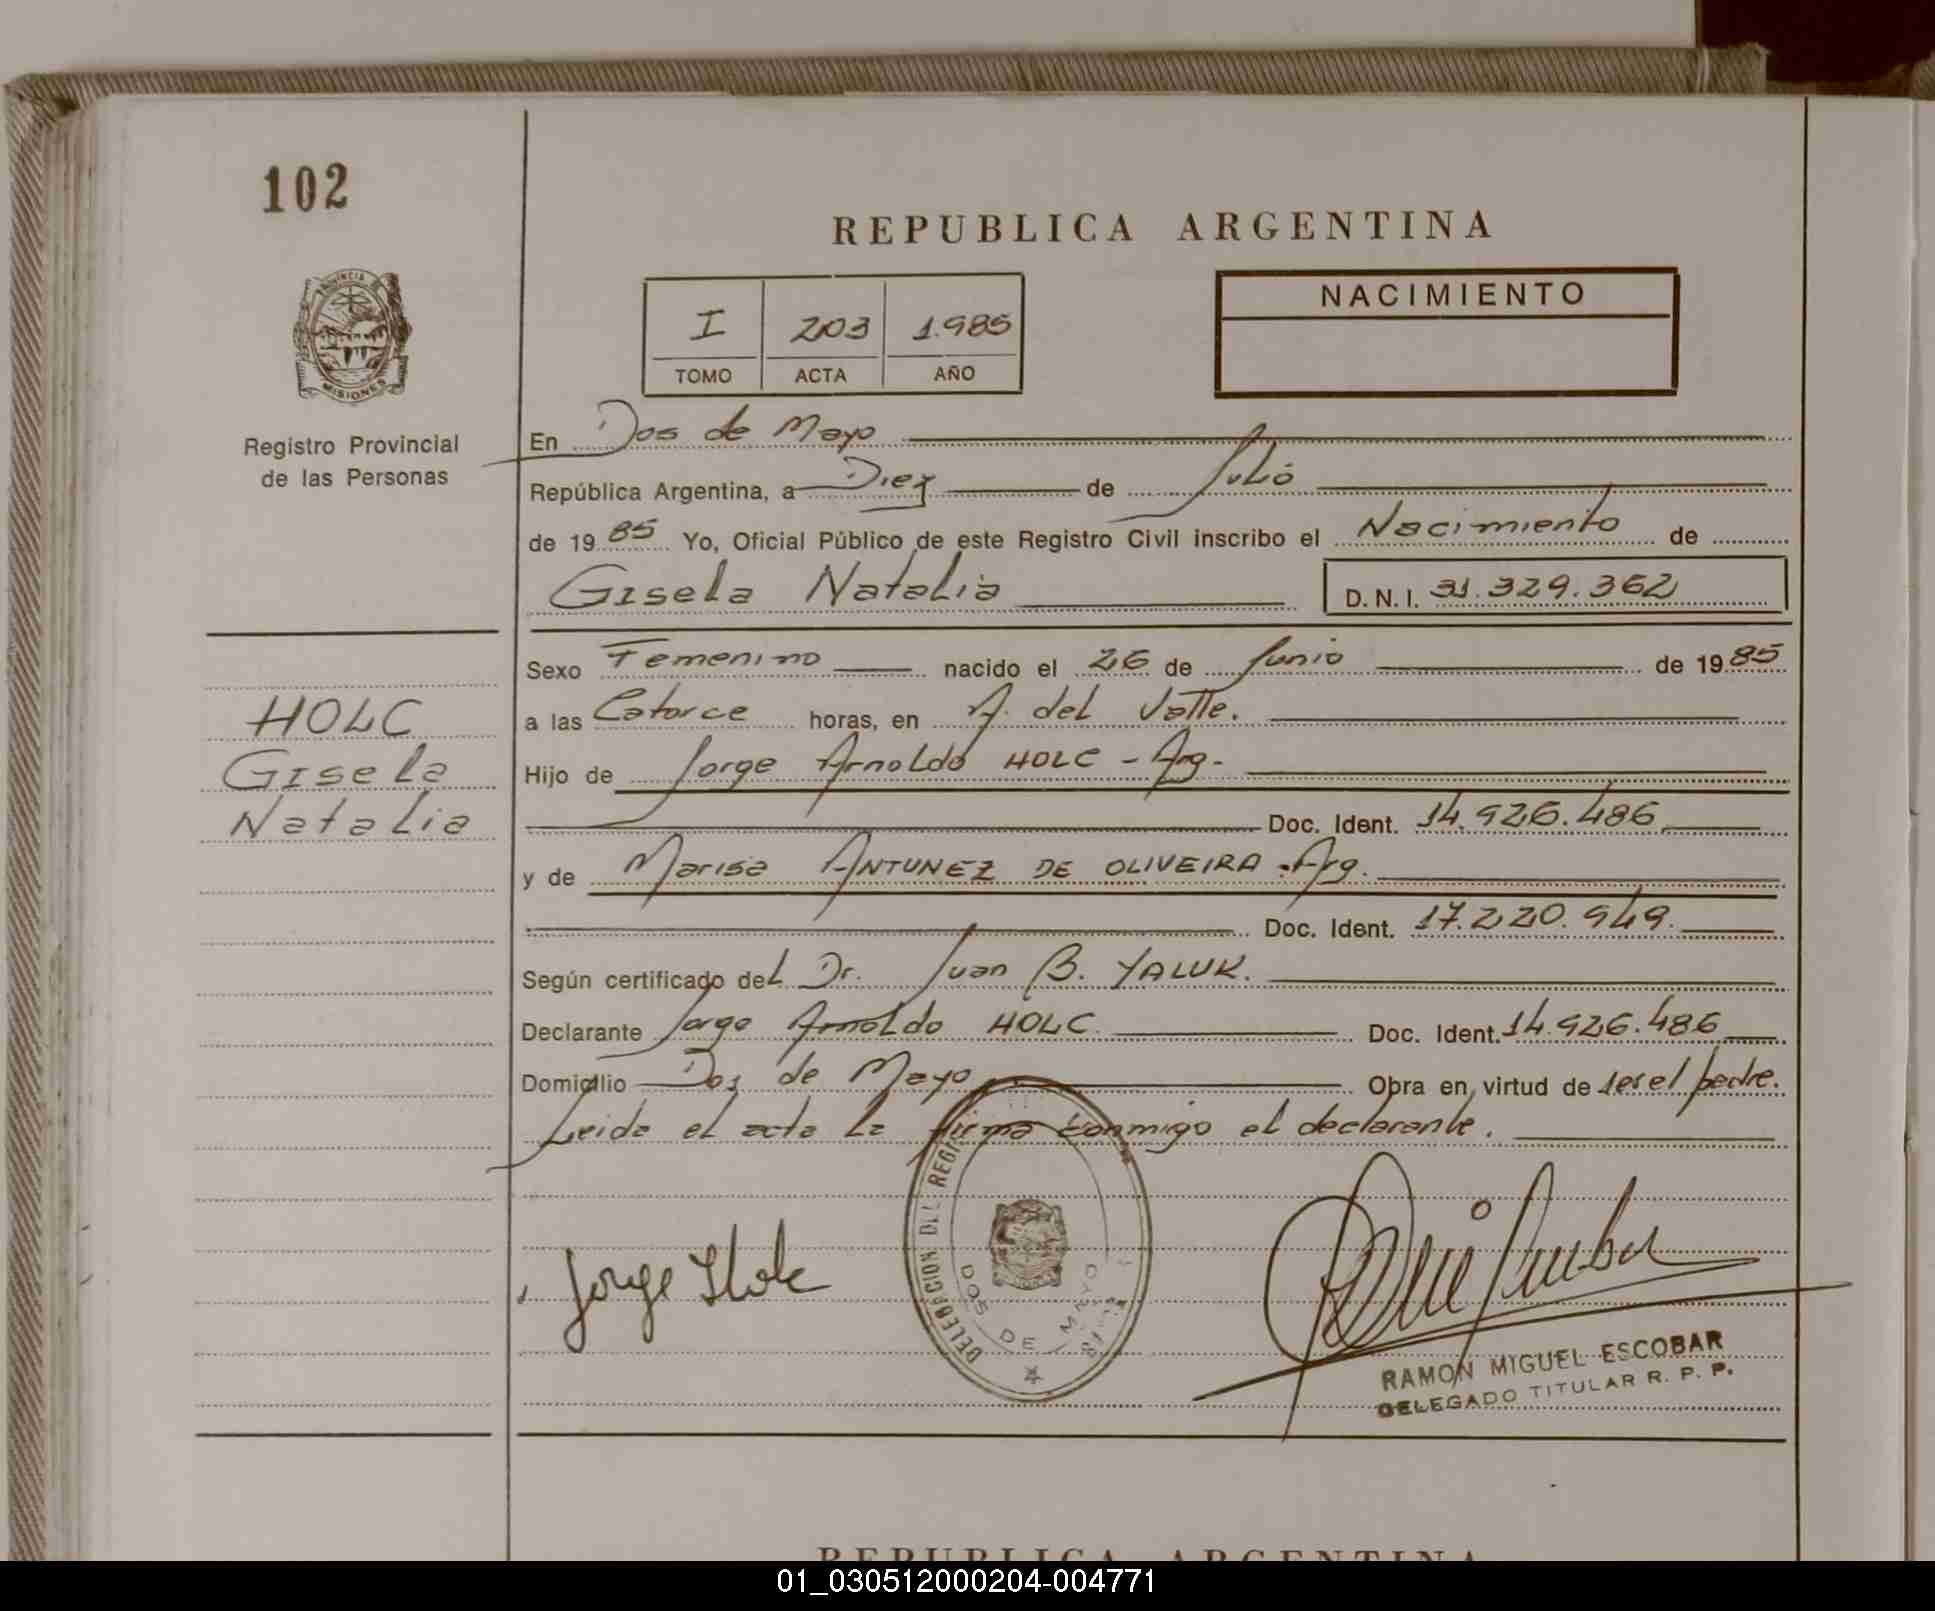 102
REPUBLICA ARGENTINA
PROVINCIA DE
MISIONES
Registro Provincial
de las Personas
I 203 1.985
TOMO ACTA AÑO
NACIMIENTO
En Dos de Mayo
República Argentina, a Diez de Julio
de 1985 Yo, Oficial Público de este Registro Civil inscribo el Nacimiento de
Gisela Natalia D.N.I. 31.329.362
Sexo Femenino nacido el 26 de Junio de 1985
a las Catorce horas, en A. del Valle.
Hijo de Jorge Arnoldo HOLC - Arg-
Doc. Ident. 14.926.486
y de Marisa ANTUNEZ DE OLIVEIRA - Arg.
Doc. Ident. 17.220.949.
Según certificado del Dr. Juan B. YALUK.
Declarante Jorge Arnoldo HOLC. Doc. Ident. 14.926.486
Domicilio Dos de Mayo Obra en virtud de ser el padre.
Leida el acta la firma conmigo el declarante.
HOLC
Gisela
Natalia
Jorge Holc
DELEGACION DEL REGI
DOS DE MAYO
RAMON MIGUEL ESCOBAR
DELEGADO TITULAR R. P. P.
REPUBLICA ARGENTINA
01_030512000204-004771